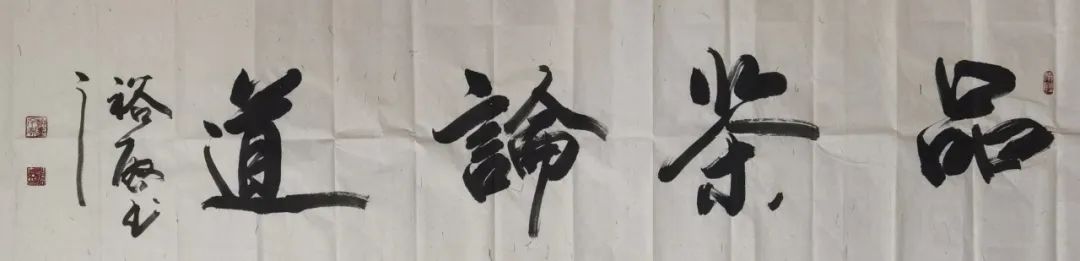 品茶論道
裕啟书